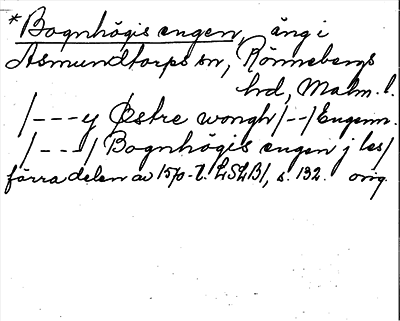 *Bognhögis engen, äng i
Asmundtorps sn, Rönnebergs
hrd, Malm. l.
/---y Østre wongh/--/Engenn.
/---/ Bognhögis engen j les/
förra delen av 1570-t. LSLB/, s. 132. orig.